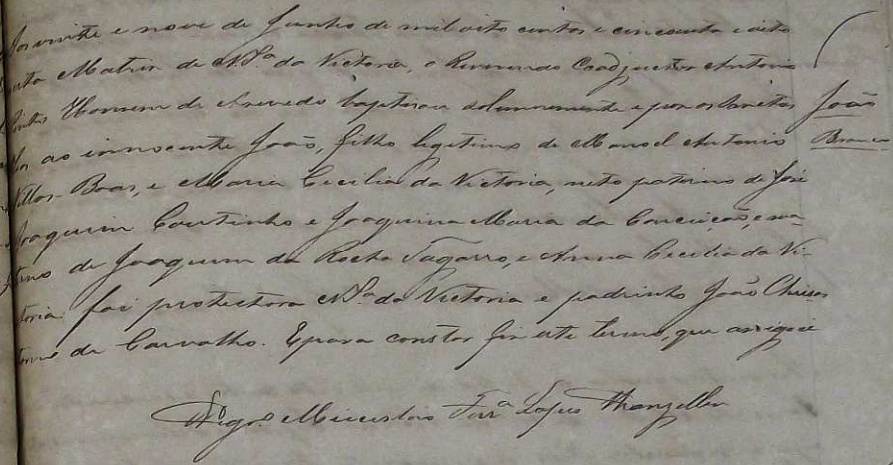 Aos vinte e nove de Junho de mil oito centos e cincoenta e oito
nesta Matriz de N. Sª da Victoria, o Reverendo Coadjuctor Antonio
Homem de Azevedo baptisou solemnemente e poz os Santos
ao innocente João, filho legitimo de Manoel Antonio
Villas-Boas, e Maria Cecilia da Victoria, neto paterno de José
Joaquim Coutinho e Joaquina Maria da Conceição, e ma-
terno de Joaquim da Rocha Tagarro, e Anna Cecilia da Vi-
ctoria: foi protectora N. Sª da Victoria e padrinho João
de Carvalho. E para constar fiz este termo, que assignei
Vigrº Miceslau Ferrª Lopes Wanzeller
João
Branco